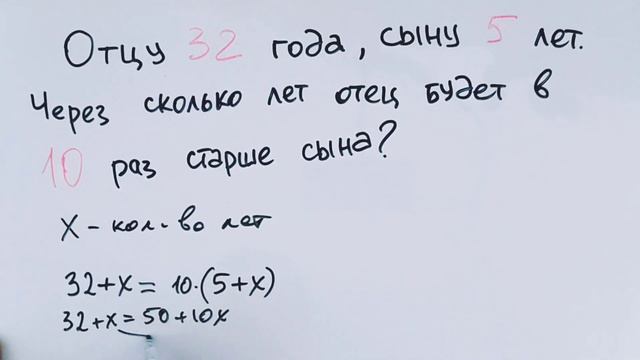 Отцу 32 года, сыну 5 лет.
Через сколько лет отец будет в
10 раз старше сына?
X - кол-во лет
32+x = 10·(5+x)
32+x = 50+10x